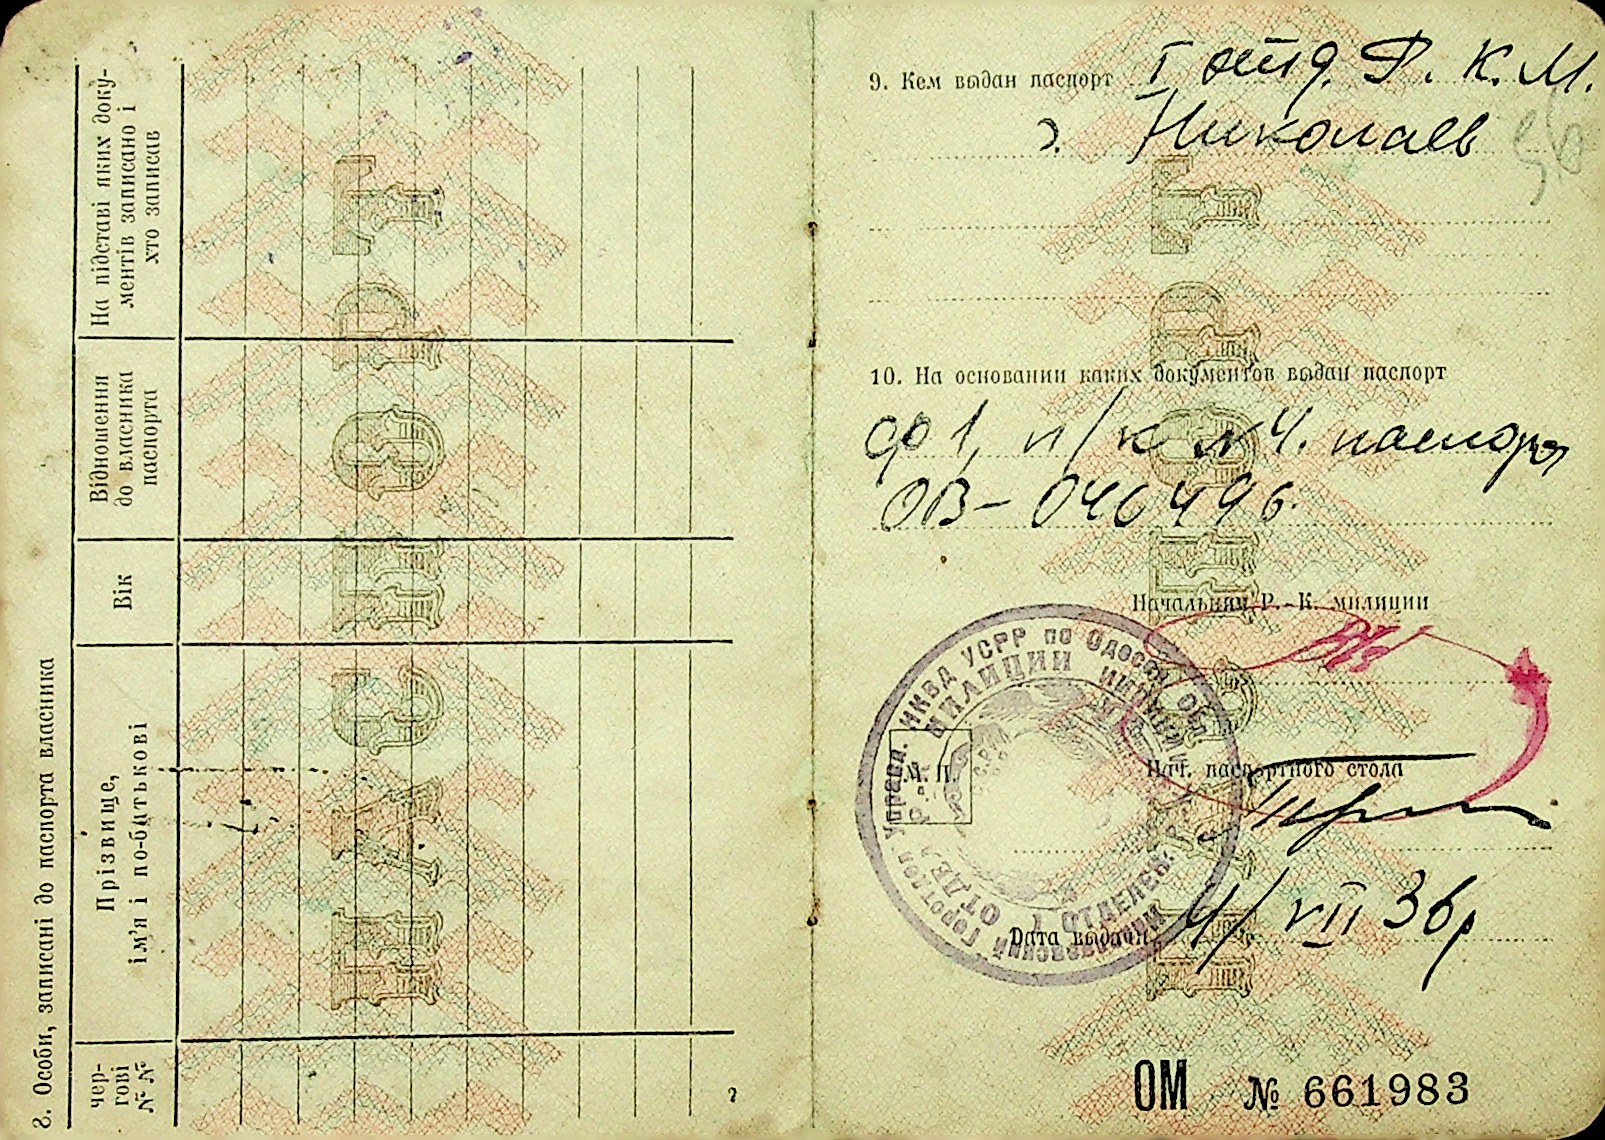 8. Особи, записані до паспорта власника
чер-
гові
№ №
Прізвище,
ім'я і по-батькові
Вік
Відношення
до власника
паспорта
На підставі яких доку-
ментів записано і
хто записав
ПАСПОРТ
9. Кем выдан паспорт I отд. Р. К. М.
г. Николаев
56
10. На основании каких документов выдан паспорт
ф 1, п/к № 4. паспорт
ОВ - 040496.
Начальник Р.-К. милиции
М. П.
Нач. паспортного стола
Дата выдачи 4/VII 36 г
НКВД УСРР по Одесск. Обл
МИЛИЦИИ
I ОТДЕЛЕН. Р. К.
ПАСПОРТ
ОМ № 661983